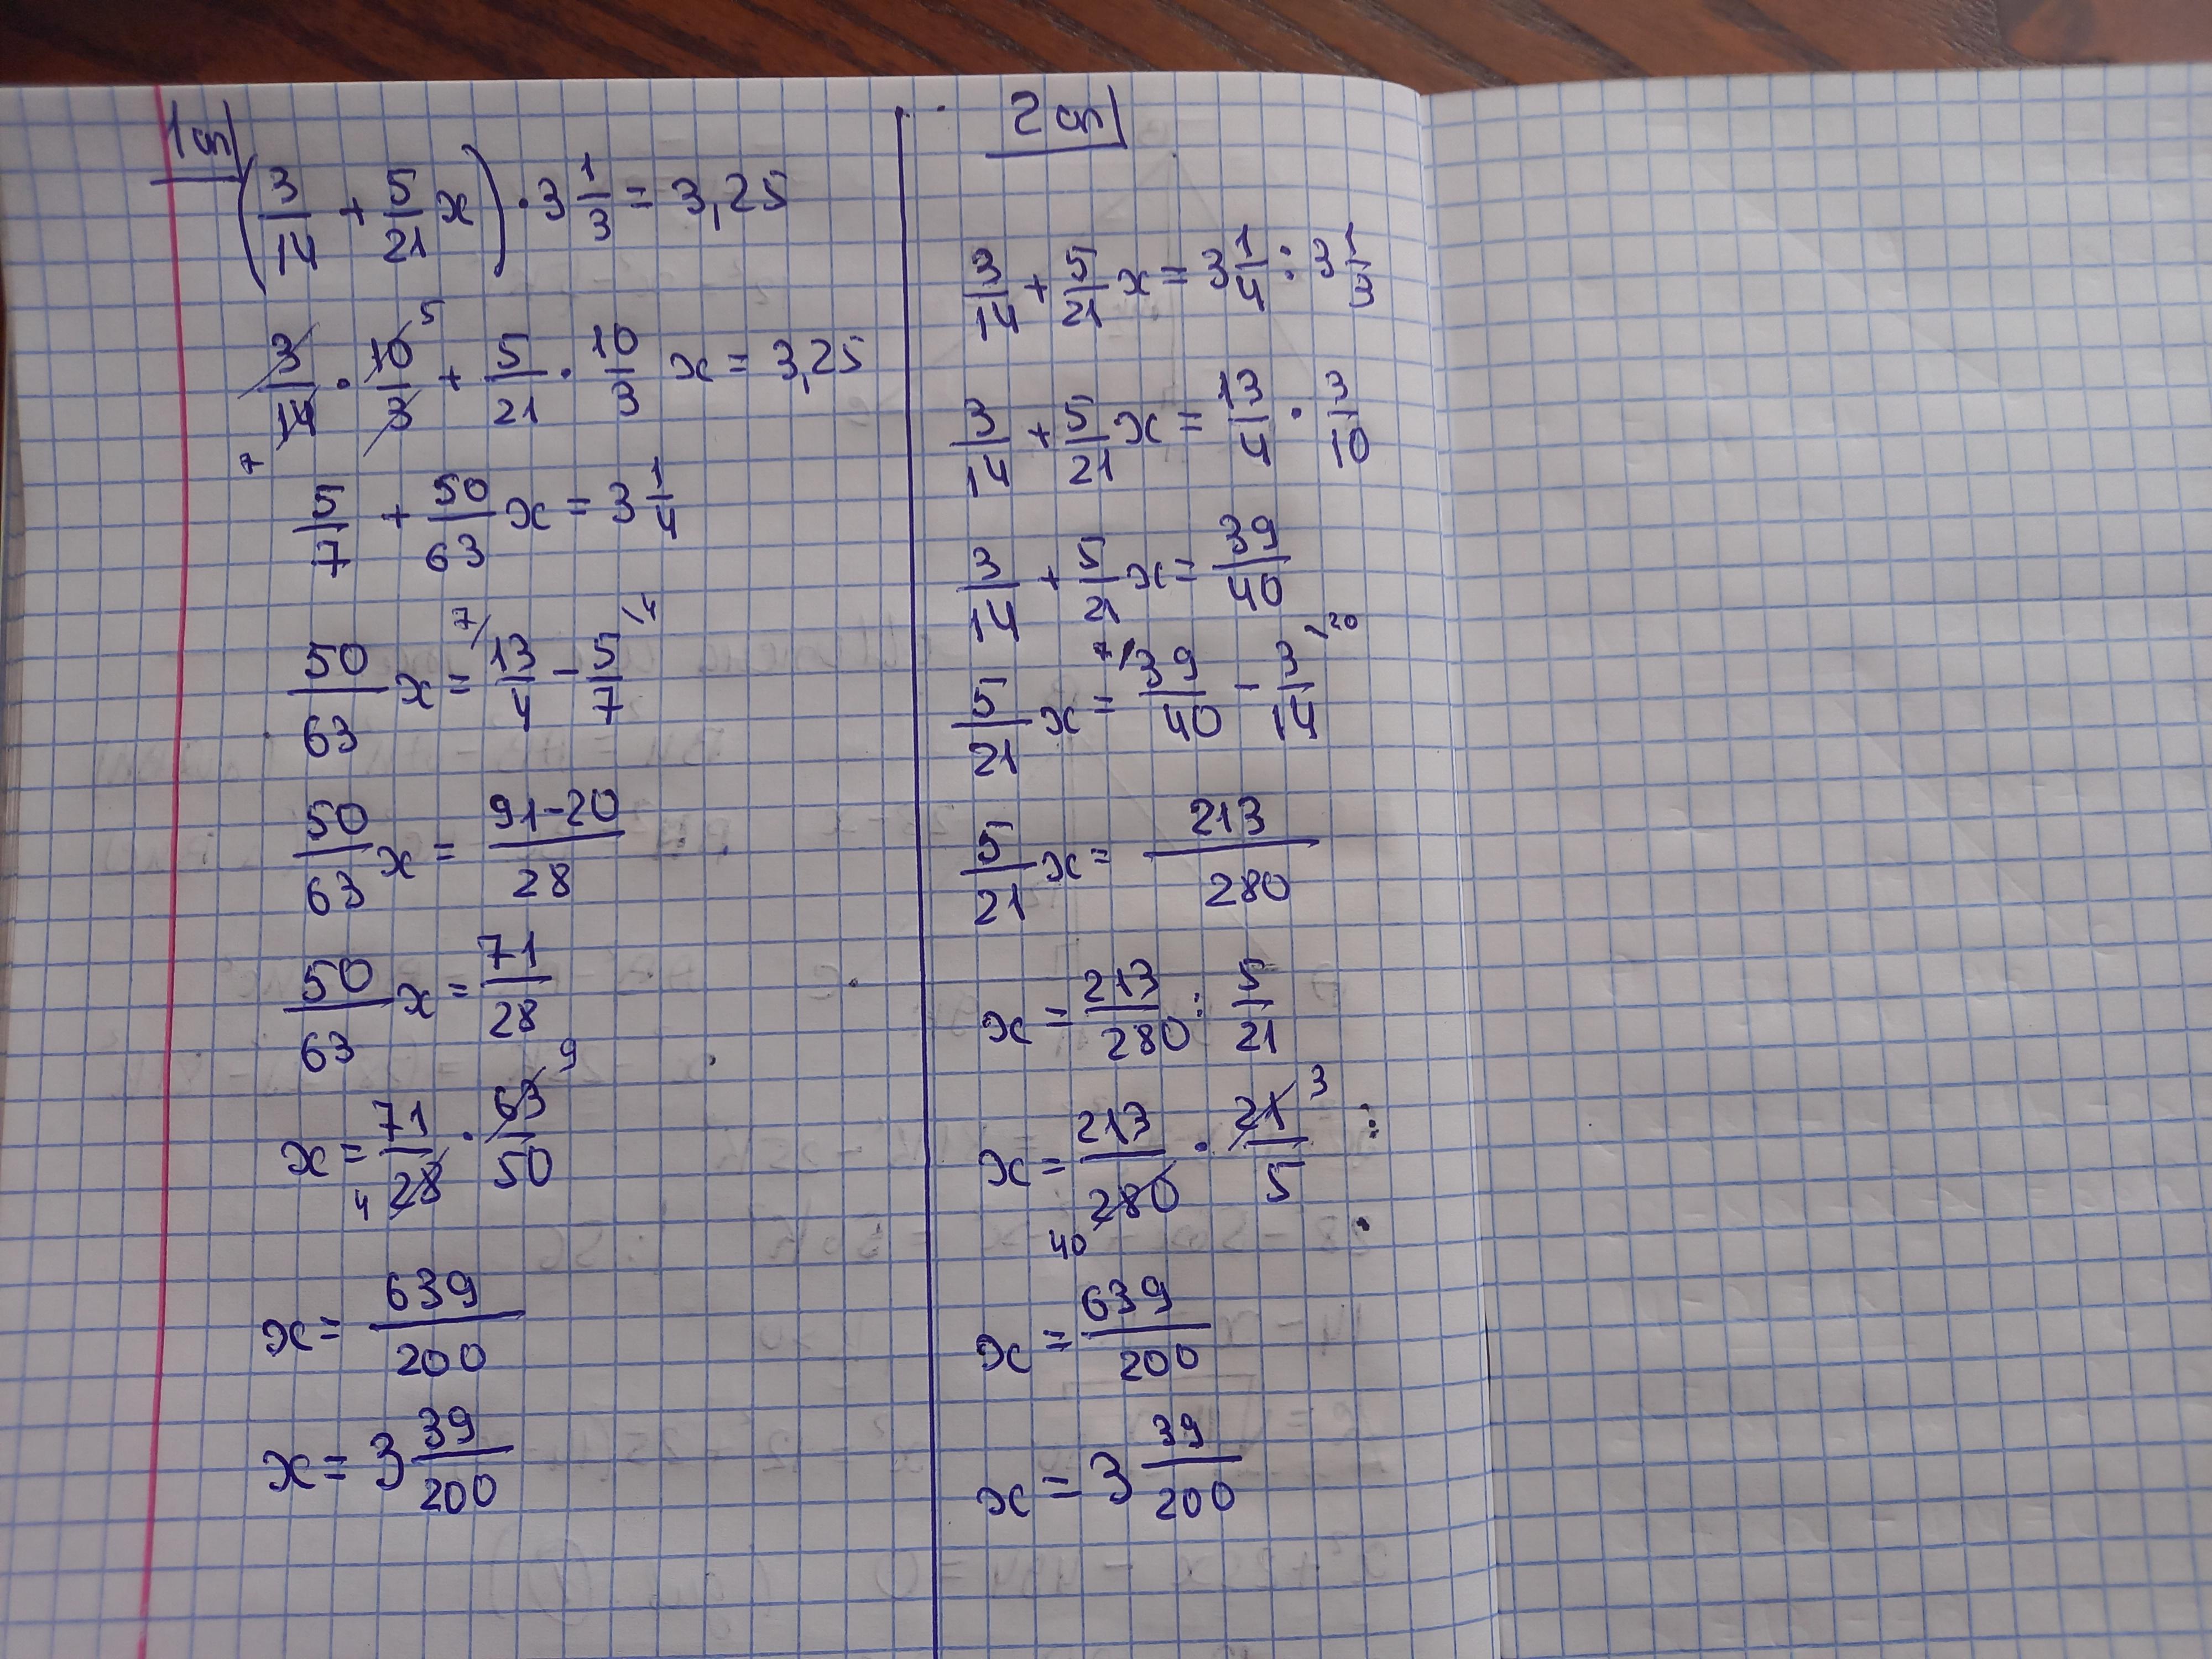 1 сп
(3/14 + 5/21 x) · 3 1/3 = 3,25
3/14 · 10/3 + 5/21 · 10/3 x = 3,25
7 5
5/7 + 50/63 x = 3 1/4
50/63 x = 7/ 13/4 - 5/7 \4
50/63 x = 91-20/28
50/63 x = 71/28
x = 71/28 · 63/50
4 9
x = 639/200
x = 3 39/200
2 сп
3/14 + 5/21 x = 3 1/4 : 3 1/3
3/14 + 5/21 x = 13/4 · 3/10
3/14 + 5/21 x = 39/40
5/21 x = 7/ 39/40 - 3/14 \20
5/21 x = 213/280
x = 213/280 : 5/21
x = 213/280 · 21/5
40 3
x = 639/200
x = 3 39/200